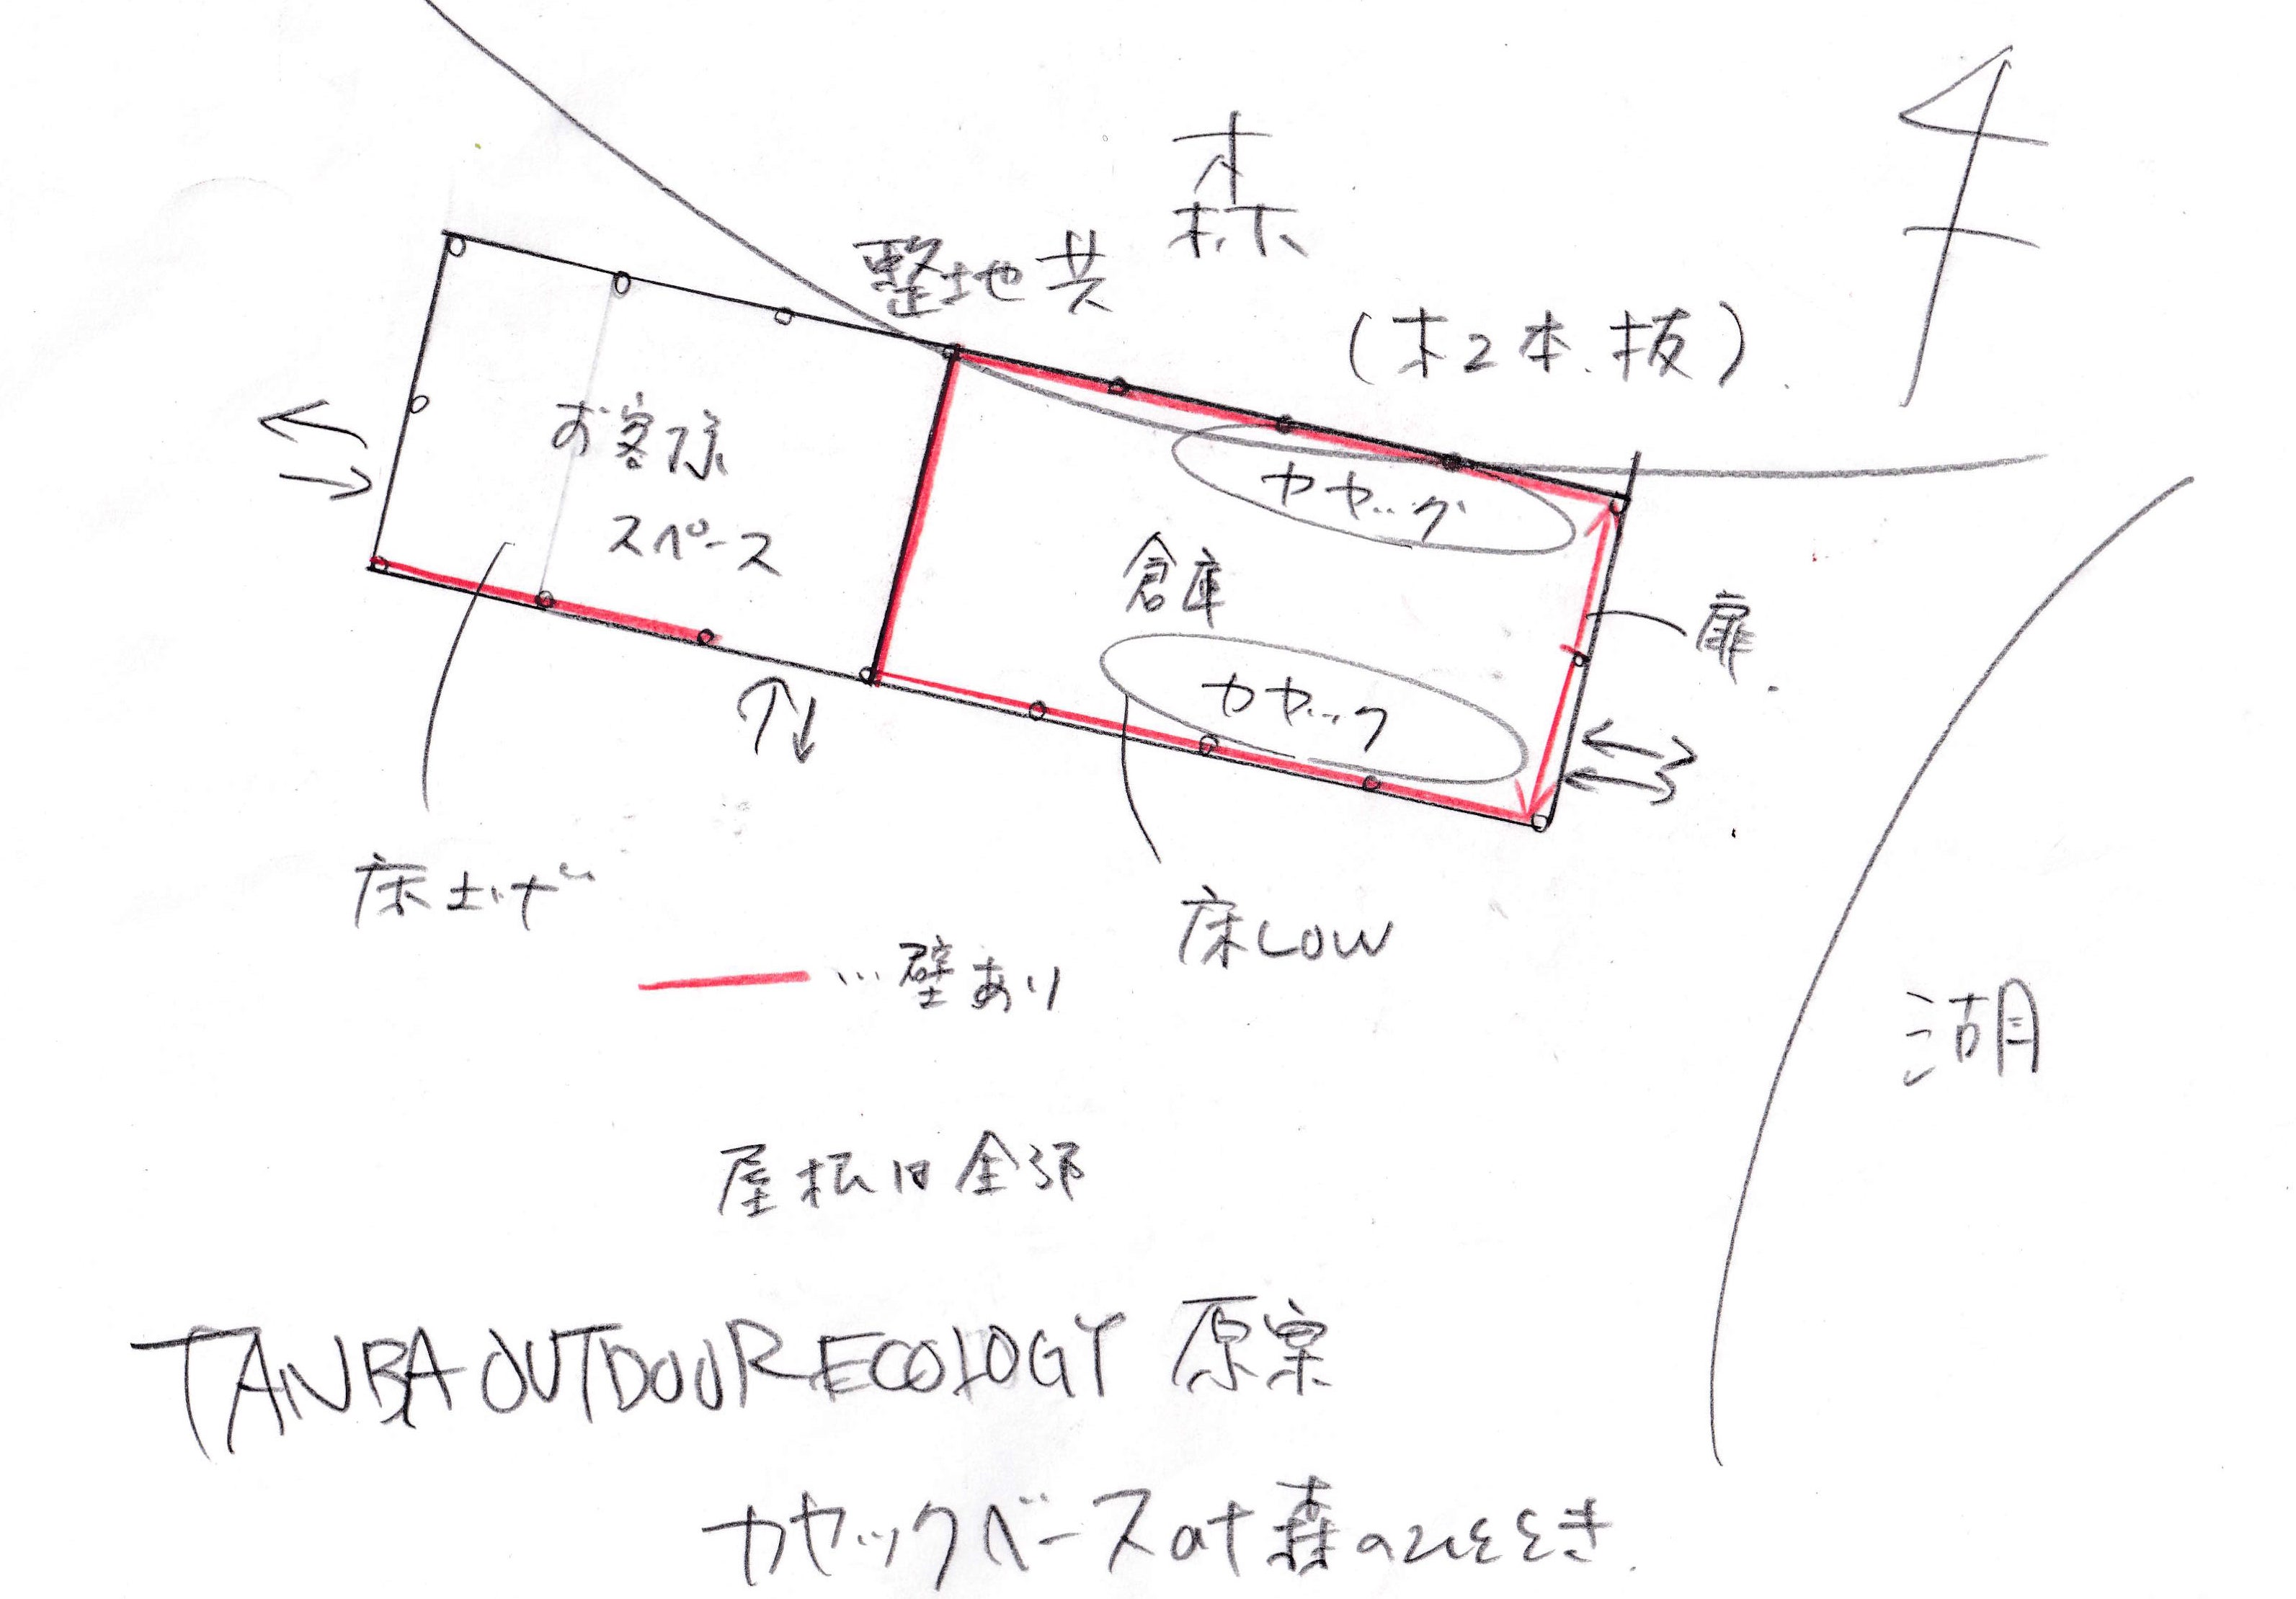 森
整地共
(木2本抜)
お客様
スペース
カヤック
倉庫
カヤック
扉
床上げ
床LOW
…壁あり
湖
屋根は全部
TANBA OUTDOOR ECOLOGY 原案
カヤックベース at 森のひととき